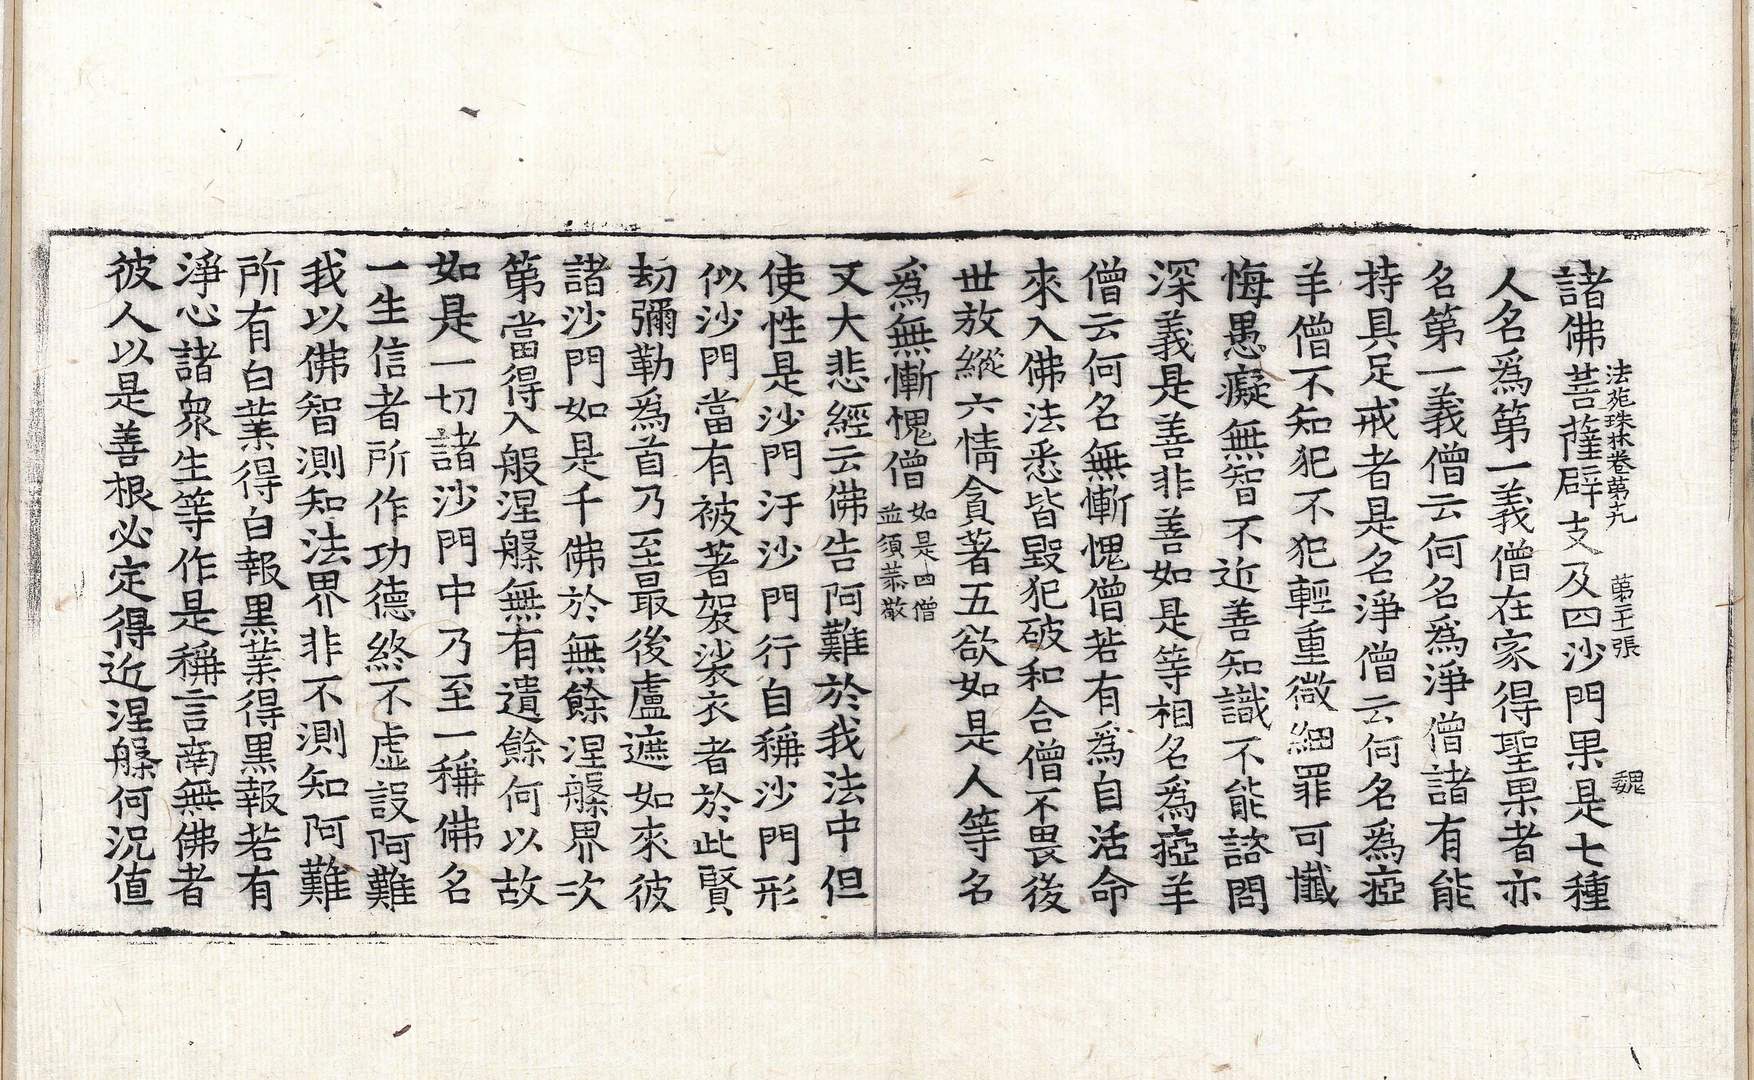 法苑珠林卷第十九　第二十張　魏
諸佛菩薩辟支及四沙門果是七種
人名爲第一義僧在家得聖果者亦
名第一義僧云何名爲淨僧諸有能
持具足戒者是名淨僧云何名爲瘂
羊僧不知犯不犯輕重微細罪可懺
悔愚癡無智不近善知識不能諮問
深義是善非善如是等相名爲瘂羊
僧云何名無慚愧僧若有爲自活命
來入佛法悉皆毀犯破和合僧不畏後
世放縱六情貪著五欲如是人等名
爲無慚愧僧如是四僧
並須恭敬
又大悲經云佛告阿難於我法中但
使性是沙門汙沙門行自稱沙門形
似沙門當有被著袈裟衣者於此賢
劫彌勒爲首乃至最後盧遮如來彼
諸沙門如是千佛於無餘涅槃界次
第當得入般涅槃無有遺餘何以故
如是一切諸沙門中乃至一稱佛名
一生信者所作功德終不虛設阿難
我以佛智測知法界非不測知阿難
所有白業得白報黑業得黑報若有
淨心諸衆生等作是稱言南無佛者
彼人以是善根必定得近涅槃何況值